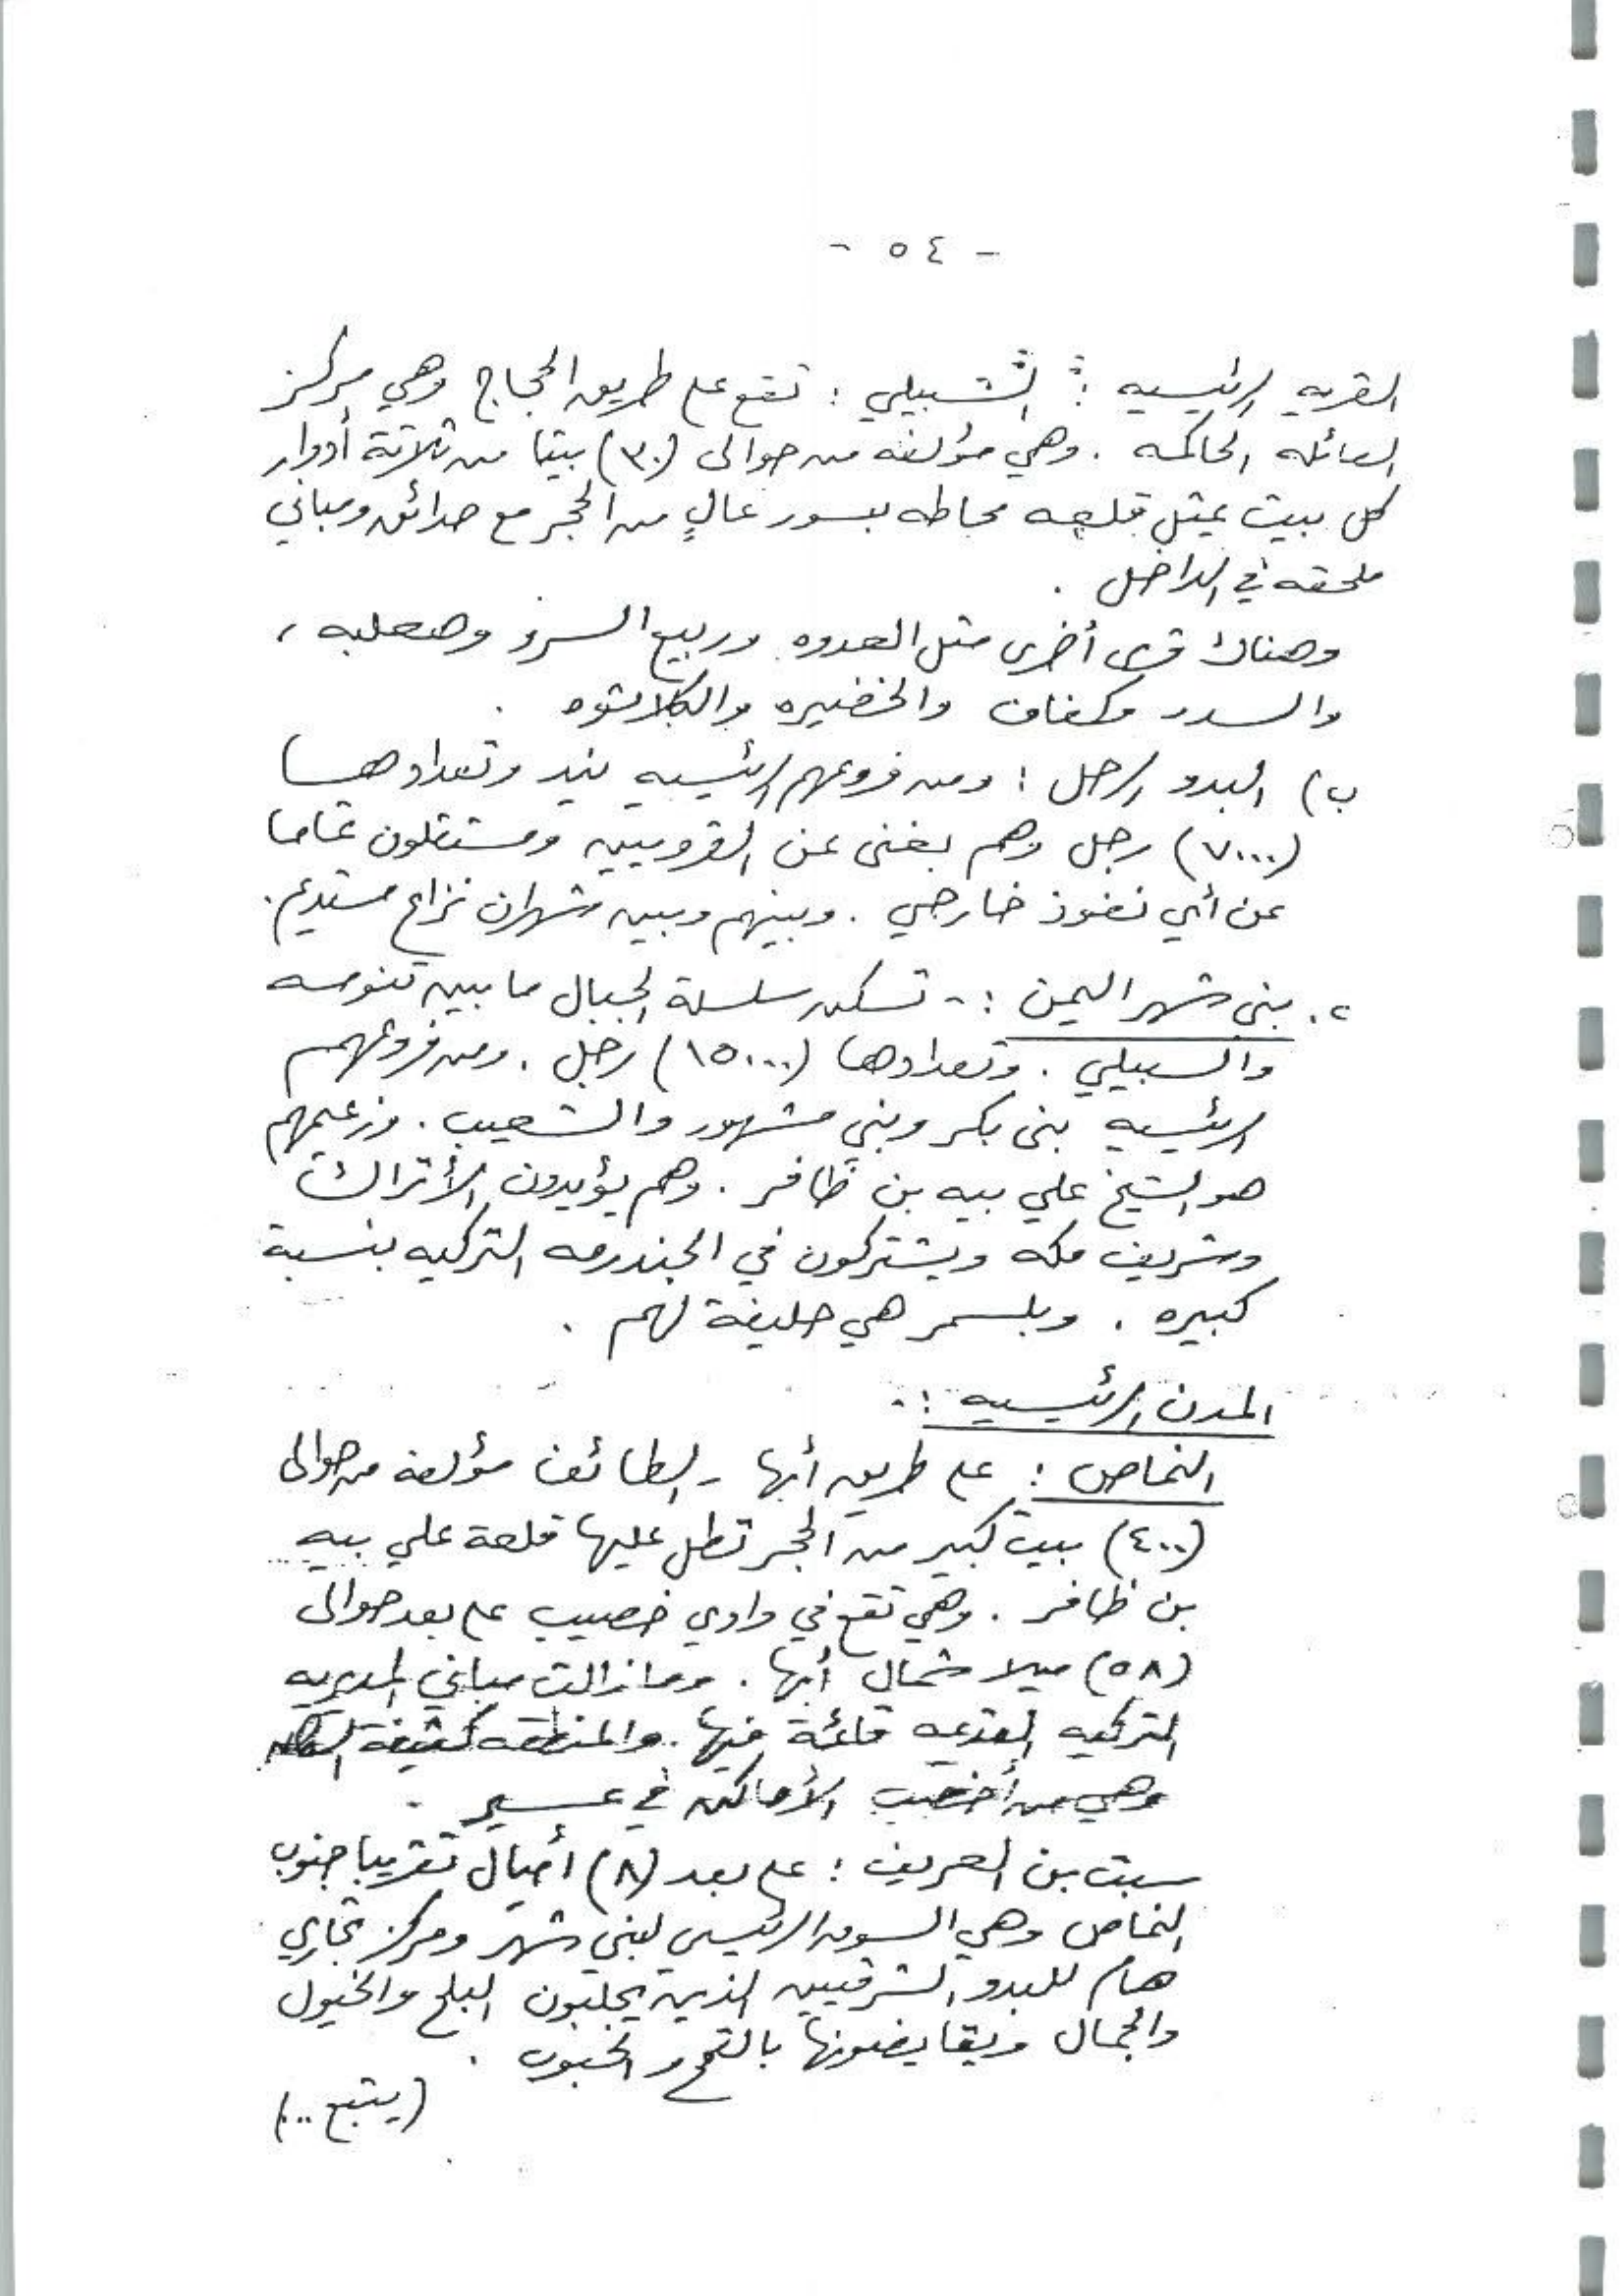 - ٥٤ -
القريه الرئيسيه : الشبيلي : تقع على طريق الحجاج وهي مركز
العائله الحاكمه . وهي مؤلفه من حوالى (٣٠) بيتا من ثلاثة أدوار
كل بيت يمثل قلعه محاطه بسور عالٍ من الحجر مع حدائق ومباني
ملحقه في الداخل .
وهناك قرى أخرى مثل العدوه وربيع السرو وصعلبه ،
والسدر وكفاف والخضيره والكلاشوه .
ب) البدو الرحل : ومن فروعهم الرئيسيه يند وتعدادها
(٧٠٠٠) رجل وهم بغنى عن القرويين ومستقلون تماما
عن أي نفوذ خارجي . وبينهم وبين شهران نزاع مستديم .
٢. بني شهر اليمن :- تسكن سلسلة الجبال ما بين تنومه
والسبيلي . وتعدادها (١٥٠٠٠) رجل . ومن فروعهم
الرئيسيه بنى بكر وبني مشهور والشعيب . وزعيمهم
هو الشيخ علي بيه بن ظافر . وهم يؤيدون الأتراك
وشريف مكه ويشتركون في الجندرمه التركيه بنسبة
كبيره . وبلسمر هي حليفة لهم .
المدن الرئيسيه :-
النماص : على طريق أبها - الطائف مؤلفة من حوالى
(٤٠٠) بيت كبير من الحجر تطل عليها قلعة علي بيه
بن ظافر . وهي تقع في وادي خصيب على بعد حوالى
(٥٨) ميلا شمال أبها . وما زالت مباني المديريه
التركيه القديمه قائمة فيها . والمنطقه كثيفة السكان
وهي من أخصب الأماكن في عسير .
سبت بن العريف : على بعد (٨) أميال تقريبا جنوب
النماص وهي السوق الرئيسي لبني شهر ومركز تجاري
هام للبدو الشرقيين الذين يجلبون البلح والخيول
والجمال ويقايضونها بالقمح والحبوب .
(يتبع ..)